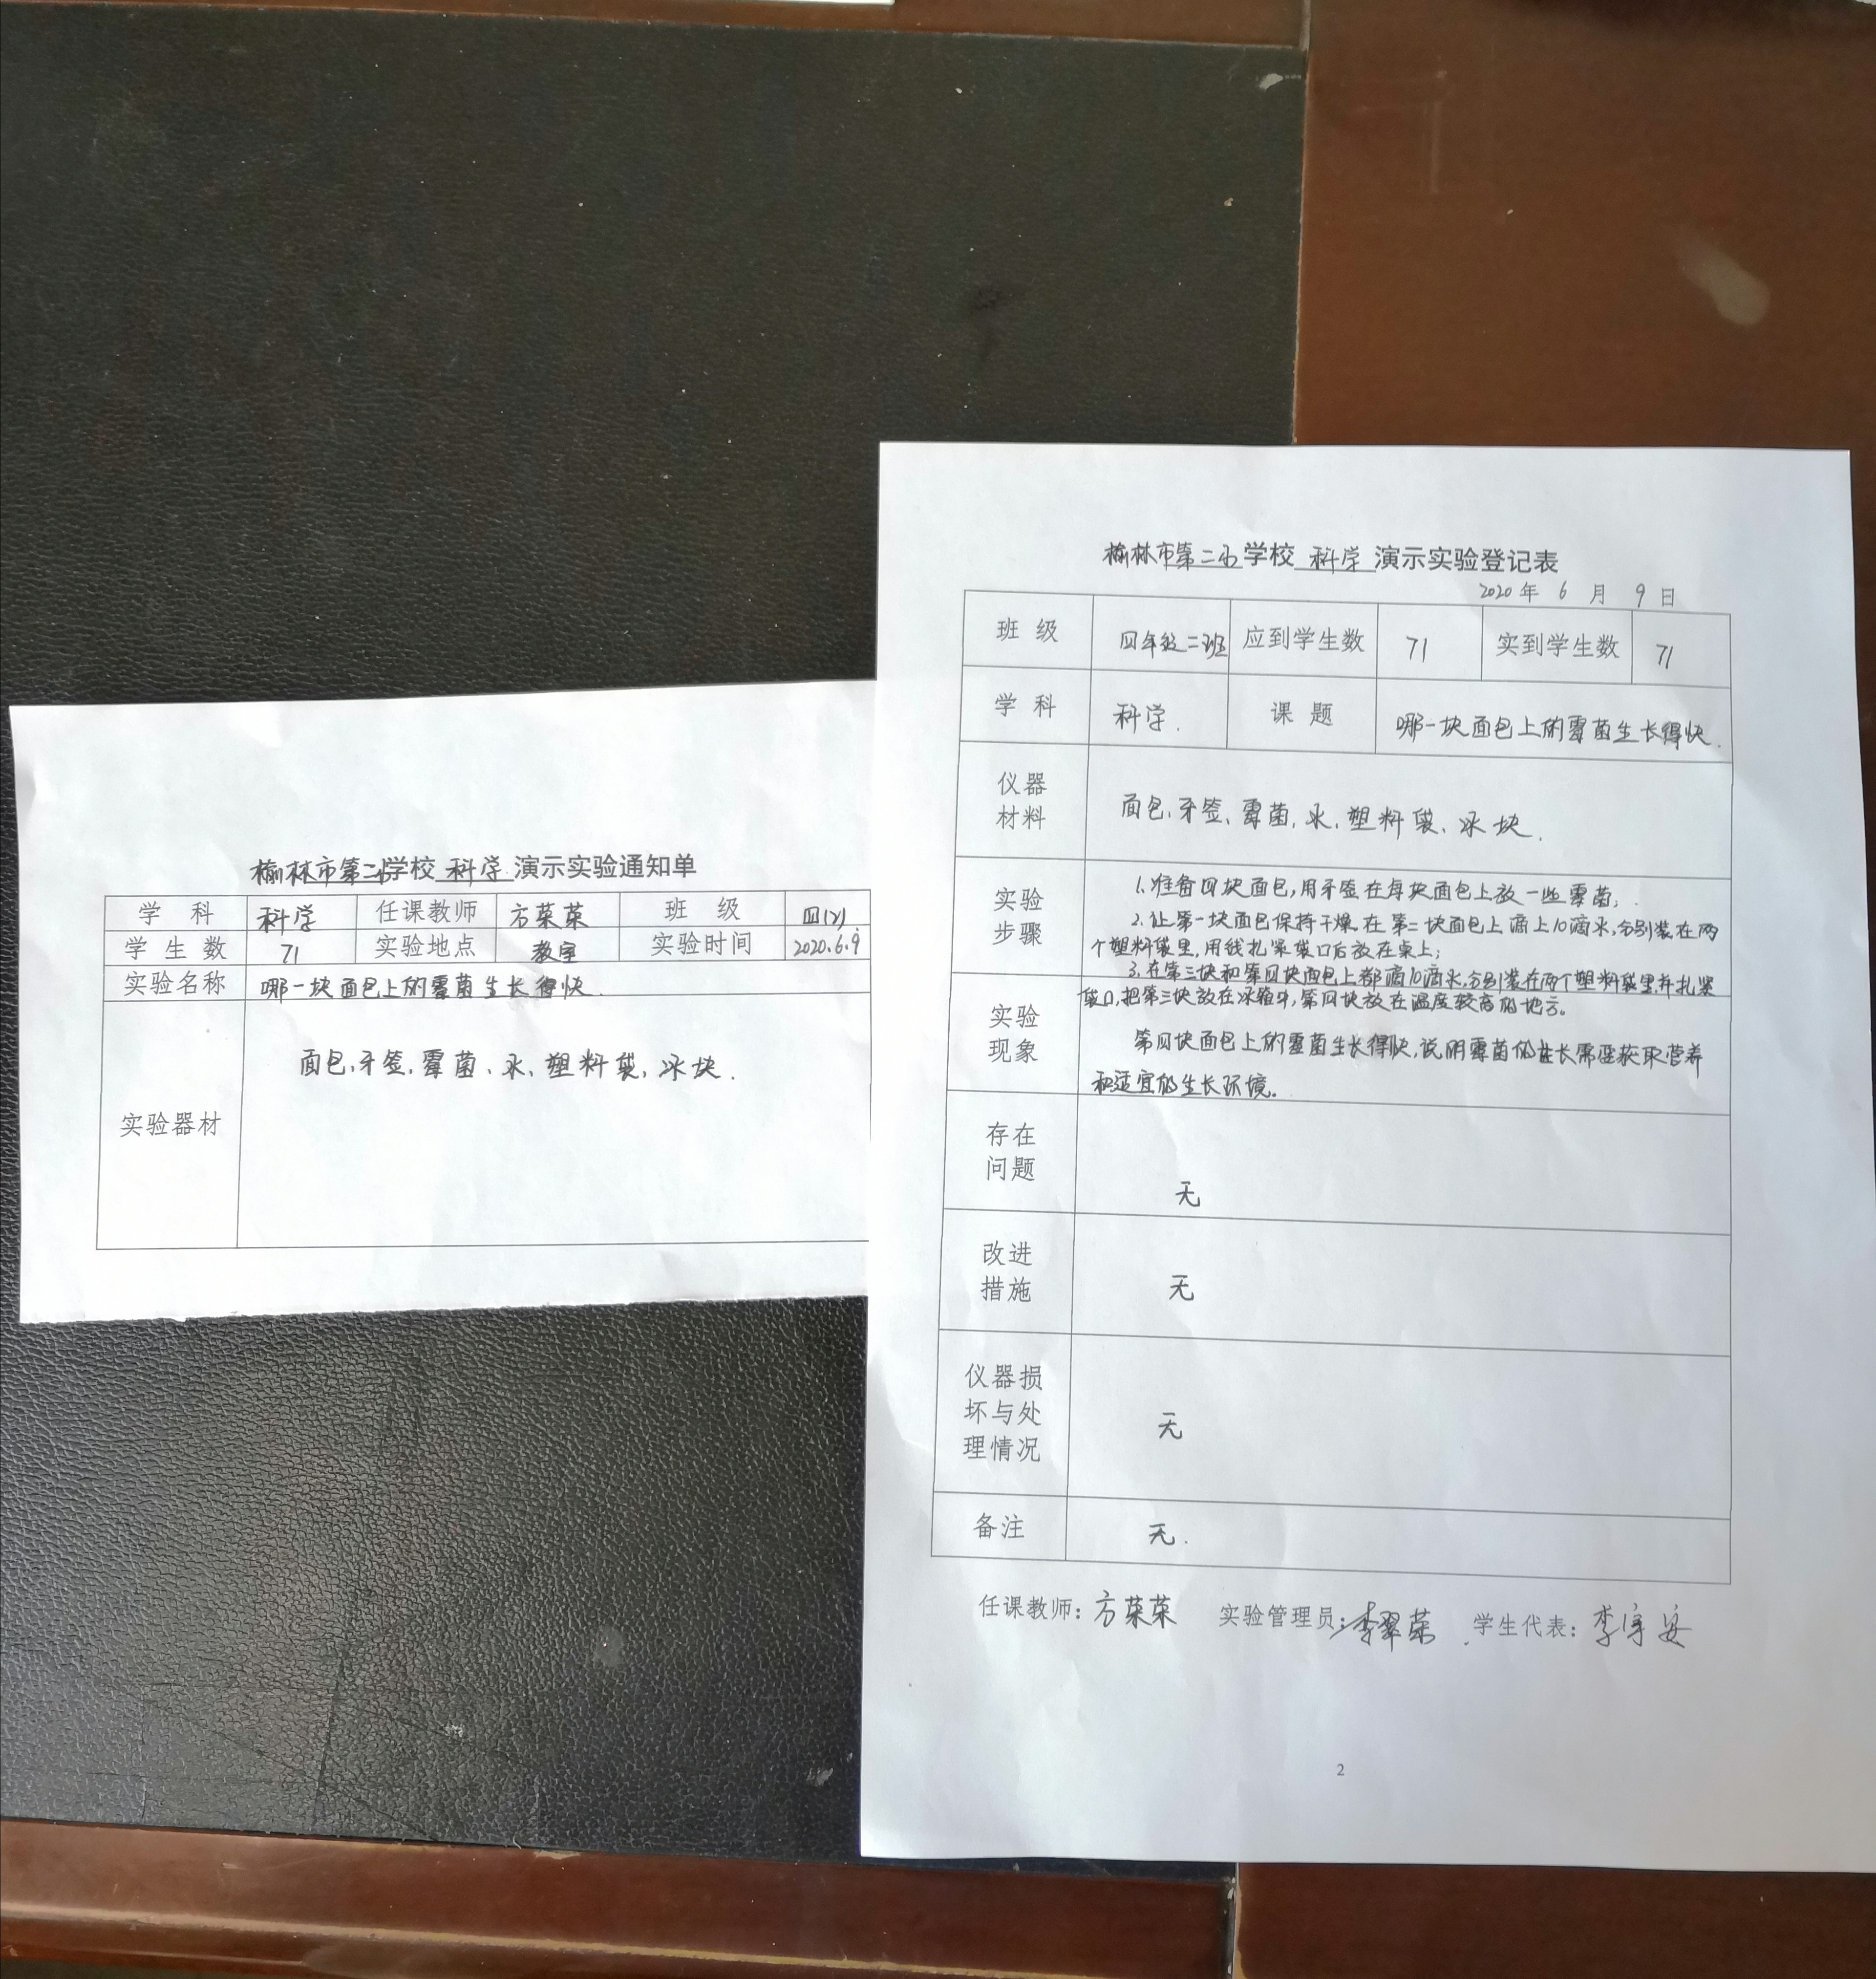 榆林市第二小学校 科学 演示实验通知单
学 科 科学 任课教师 方荣荣 班 级 四(2)
学 生 数 71 实验地点 教室 实验时间 2020.6.9
实验名称 哪一块面包上的霉菌生长得快.
实验器材 面包、牙签、霉菌、水、塑料袋、冰块.
榆林市第二小学校 科学 演示实验登记表
2020年 6 月 9 日
班 级 四年级二班 应到学生数 71 实到学生数 71
学 科 科学. 课 题 哪一块面包上的霉菌生长得快.
仪器
材料
面包、牙签、霉菌、水、塑料袋、冰块.
实验
步骤
1.准备四块面包,用牙签在每块面包上放一些霉菌;
2.让第一块面包保持干燥.在第二块面包上滴上10滴水,分别装在两
个塑料袋里,用线扎紧袋口后放在桌上;
3.在第三块和第四块面包上都滴10滴水,分别装在两个塑料袋里,并扎紧
袋口,把第三块放在冰箱中,第四块放在温度较高的地方。
实验
现象
第四块面包上的霉菌生长得快,说明霉菌的生长需要获取营养
和适宜的生长环境。
存在
问题
无
改进
措施
无
仪器损
坏与处
理情况
无
备注 无.
任课教师:方荣荣 实验管理员:李翠荣 学生代表:李宇安
2